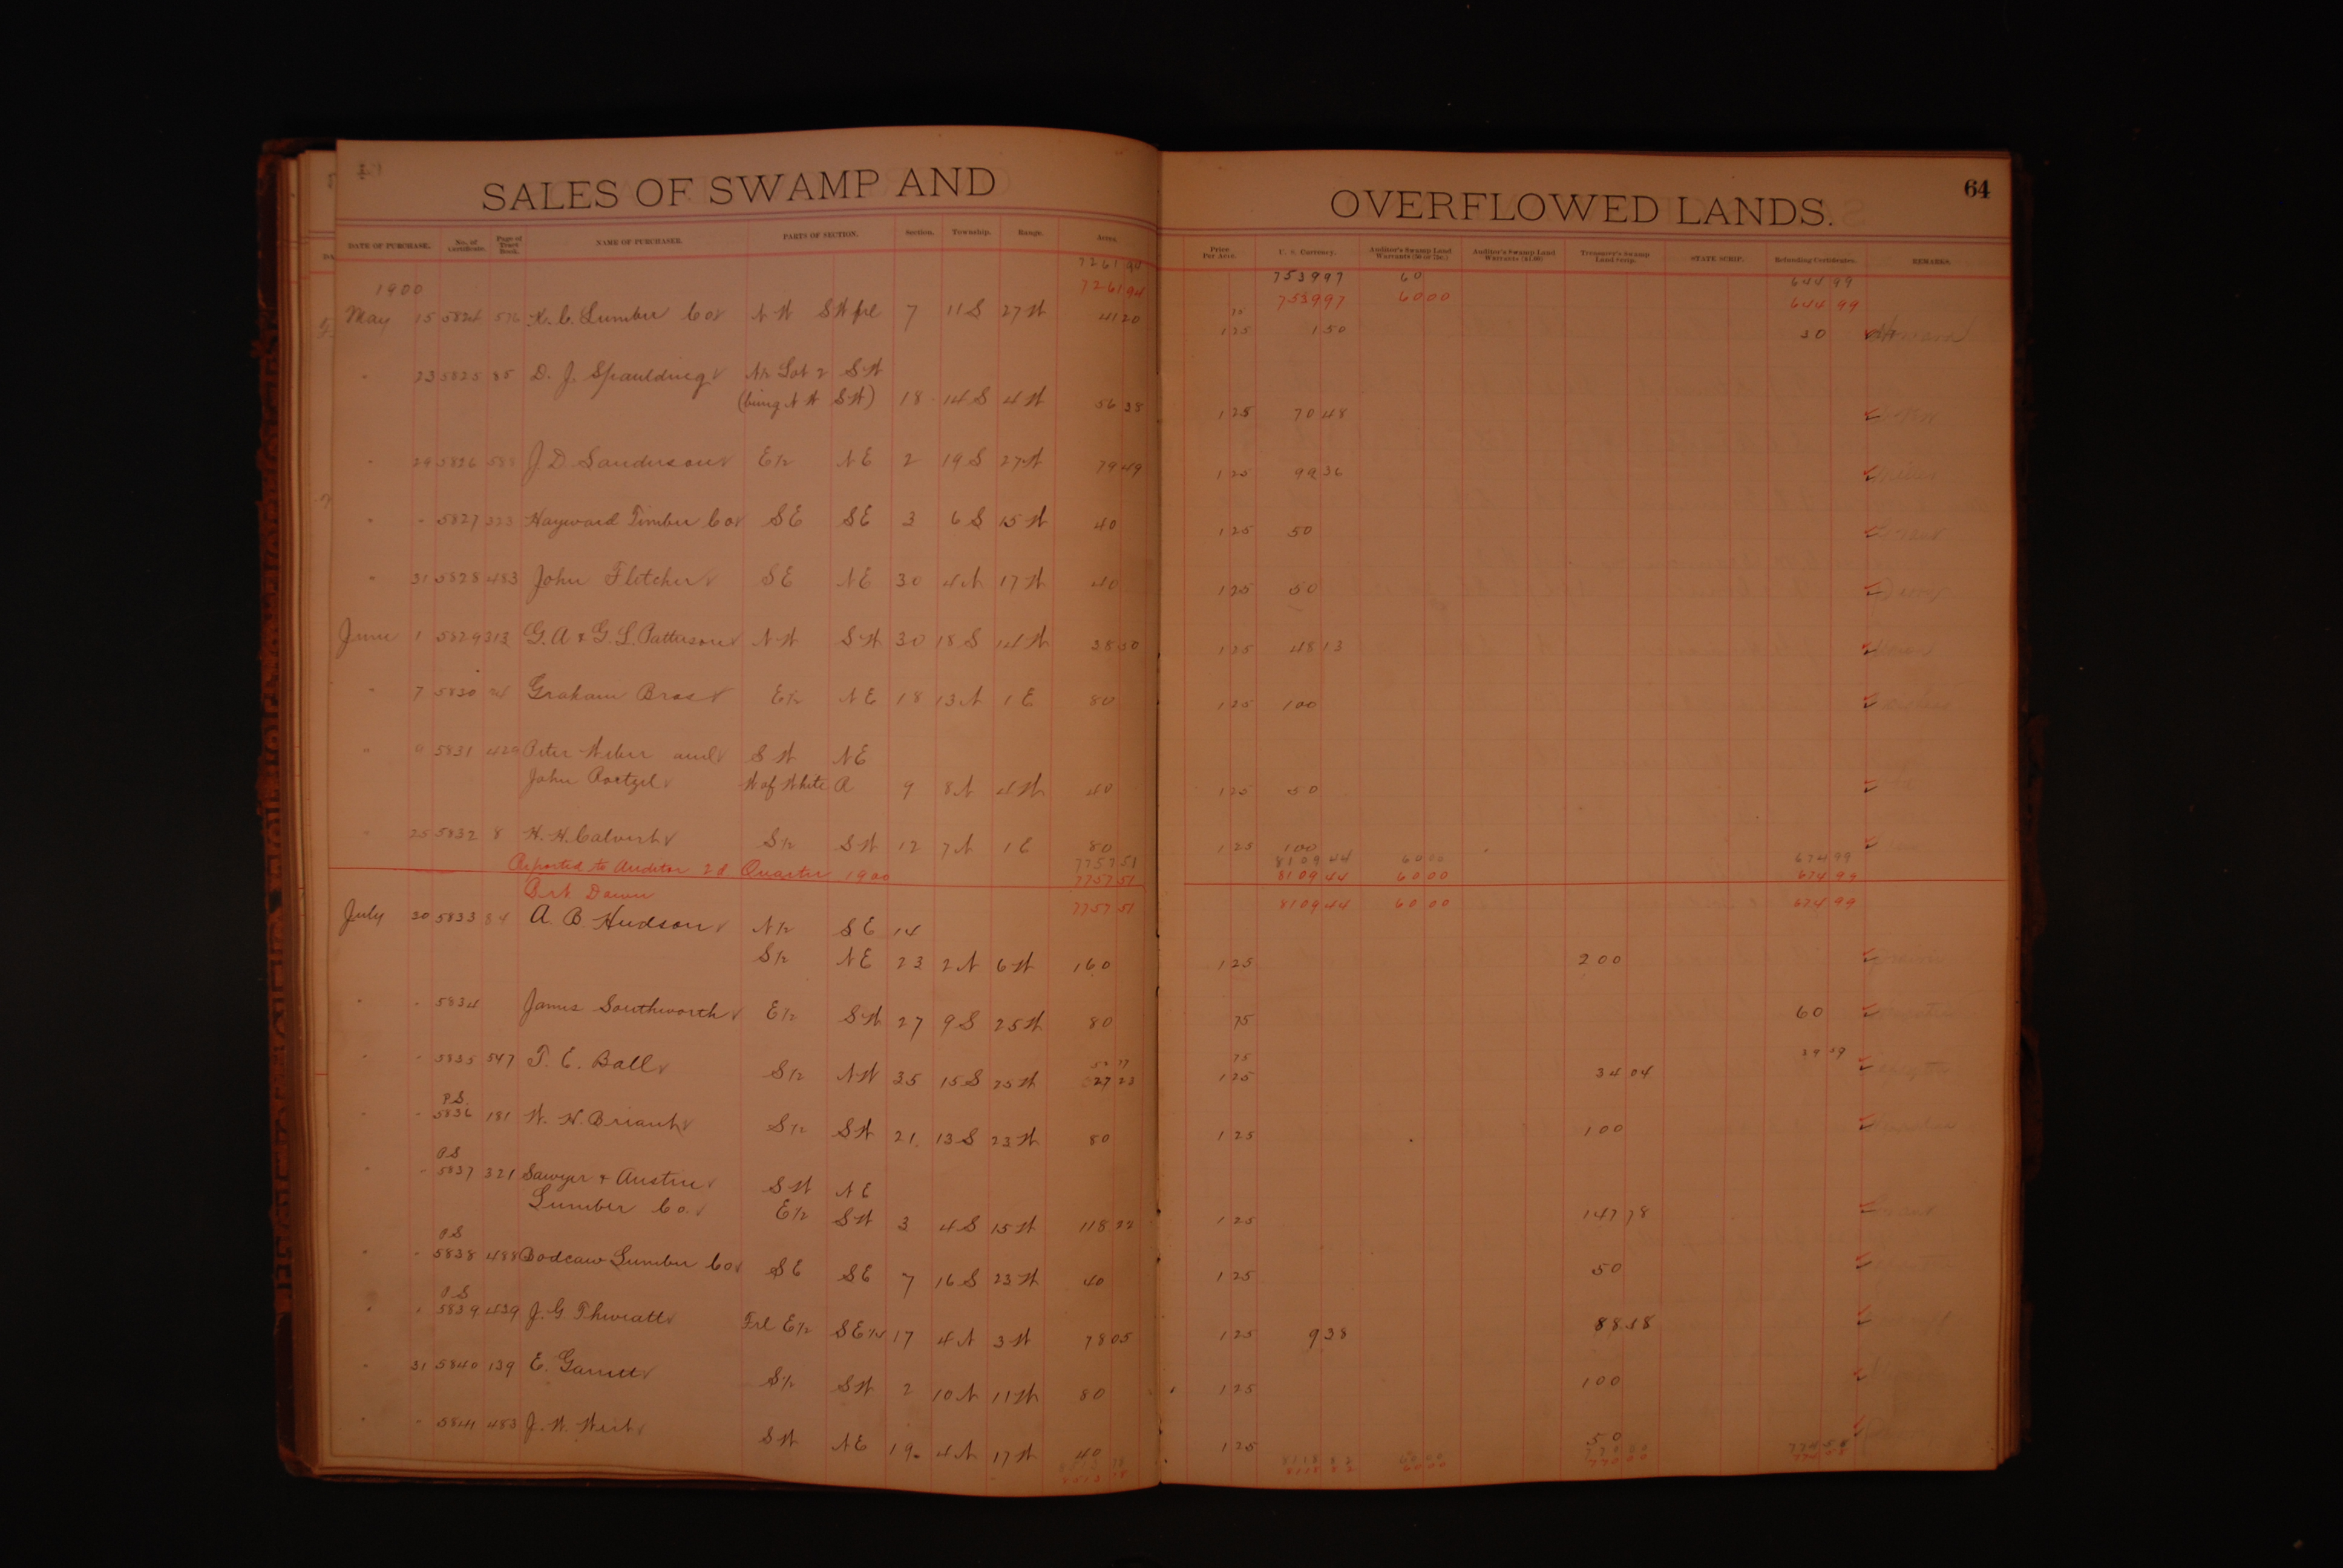 SALES OF SWAMP AND OVERFLOWED LANDS. 64
DATE OF PURCHASE. No. of Certificate. Page of Tract Book. NAME OF PURCHASER. PARTS OF SECTION. Section. Township. Range. Acres. Price Per Acre. U. S. Currency. Auditor's Swamp Land Warrants Auditor's Swamp Land Warrants Treasurer's Swamp Land Scrip. STATE SCRIP. Refunding Certificates. REMARKS.
7261 94 7539 97 60 644 99
1900 7261 94 7539 97 60 00 644 99
May 15 5824 576 K. C. Lumber Co N W S W frl 7 11 S 27 W 41 20 1 25 1 50 30
" 23 5825 85 D. J. Spaulding N 1/2 Lot 2 S W
(being N W S W) 18 14 S 4 W 56 38 1 25 70 48
" 29 5826 588 J. D. Sanderson E 1/2 N E 2 19 S 27 W 79 49 1 25 99 36
" " 5827 323 Hayward Timber Co S E S E 3 6 S 15 W 40 1 25 50
" 31 5828 483 John Fletcher S E N E 30 4 N 17 W 40 1 25 50
June 1 5829 313 G. A & G. L. Patterson N W S W 30 18 S 14 W 38 50 1 25 48 13
" 7 5830 24 Graham Bros E 1/2 N E 18 13 N 1 E 80 1 25 100
" 9 5831 429 Peter Weber and S W N E
John Roetzel W of White R 9 8 N 4 W 40 1 25 50
" 25 5832 8 H. H. Calvert S 1/2 S W 12 7 N 1 E 80 1 25 100
7757 51 8109 44 60 00 674 99
Reported to Auditor 2d Quarter 1900 7757 51 8109 44 60 00 674 99
Brt Down 7757 51 8109 44 60 00 674 99
July 30 5833 84 A. B. Hudson N 1/2 S E 14
S 1/2 N E 23 2 N 6 W 160 1 25 200
" " 5834 James Southworth E 1/2 S W 27 9 S 25 W 80 75 60
52 77 75 39 59
" " 5835 547 T. E. Ball S 1/2 N W 35 15 S 25 W 27 23 1 25 34 04
P S
" " 5836 181 W. W. Briant S 1/2 S W 21 13 S 23 W 80 1 25 100
P S
" " 5837 321 Sawyer & Austin S W N E
Lumber Co. E 1/2 S W 3 4 S 15 W 118 22 1 25 147 78
P S
" " 5838 488 Bodcaw Lumber Co S E S E 7 16 S 23 W 40 1 25 50
P S
" " 5839 439 J. G. Thweatt Frl E 1/2 S E 1/4 17 4 N 3 W 78 05 1 25 9 38 88 18
" 31 5840 139 E. Garrett S 1/2 S W 2 10 N 11 W 80 1 25 100
" " 5841 483 J. W. West S W N E 19 4 N 17 W 40 1 25 50
8118 82 60 00 770 00 774 58
8118 82 60 00 770 00 774 58